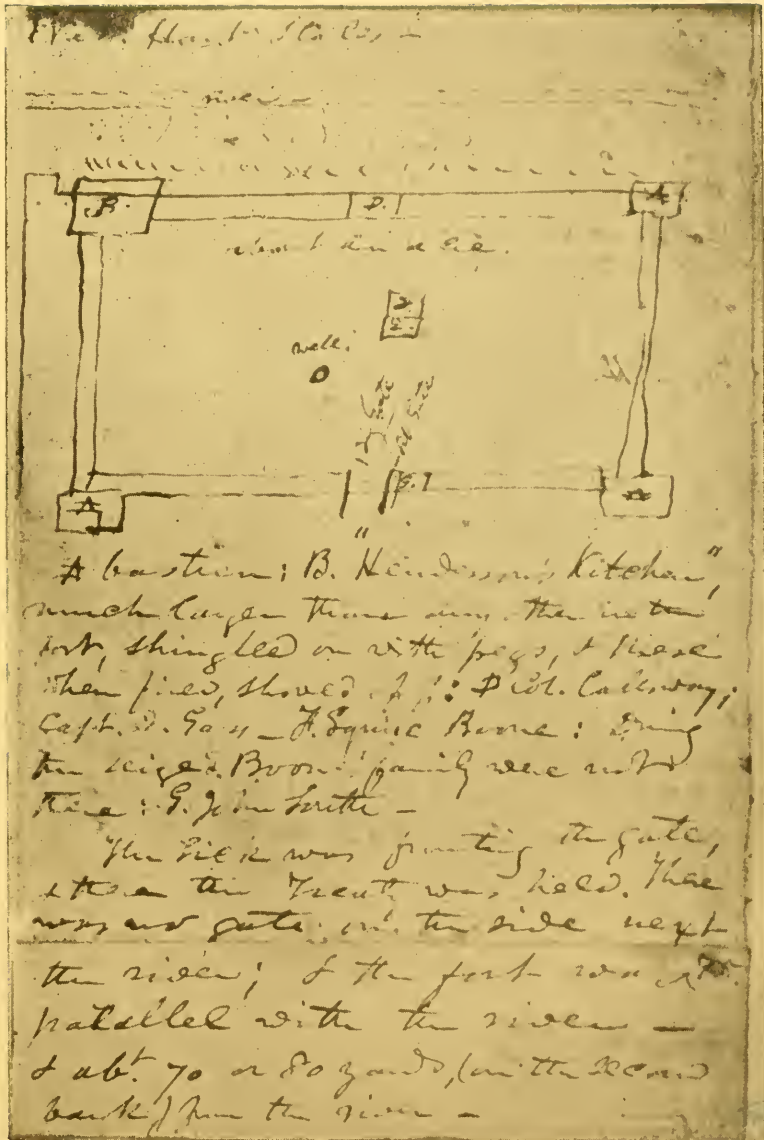 river
B.
D.
A
about an acre.
2
E.
well.
1st Gate
2d Gate
H
G.
A
A
A bastion; B. "Henderson's Kitchen",
much larger than any other in the
fort, shingled on with pegs, & these
when fired, shoved off: D Col. Calloway;
Capt. D. Gass _ F. Squire Boone:
the seige D. Boone's family were not
there: G. John Smith _
The Lick was fronting the gate,
where the Treaty was held. There
was no gate on the side next
the river; & the fort was
parallel with the river _
& abt. 70 or 80 yards, (on the second
bank) from the river _